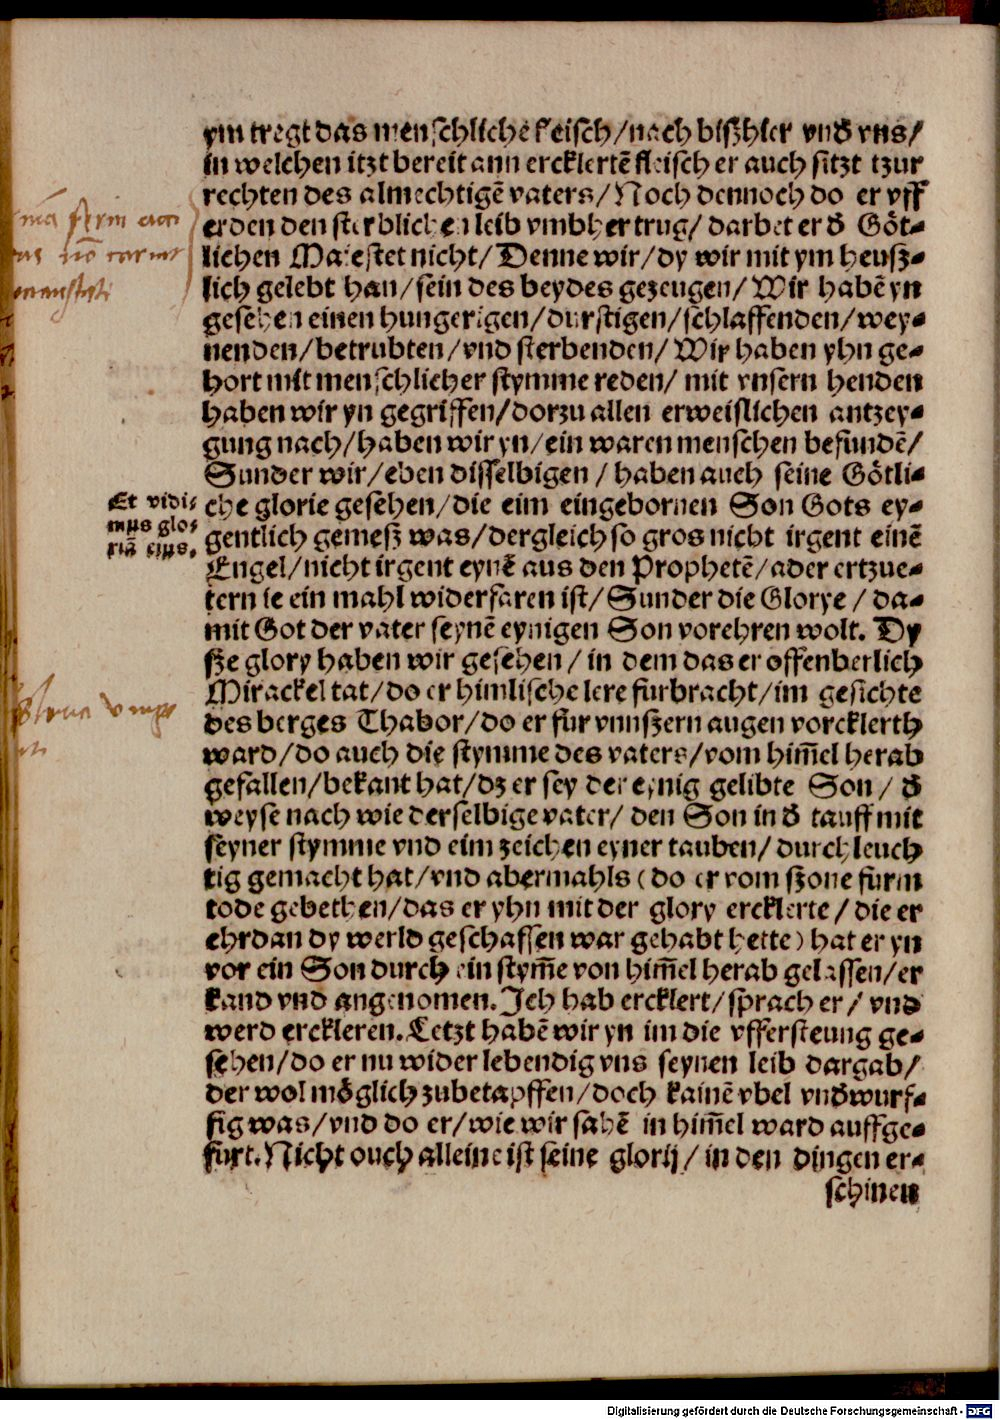 ym tregt das menschliche fleisch/nach biszhier vnd vns/
in welchen itzt bereit ann ercklertē fleisch er auch sitzt tzur
rechten des almechtigē vaters/Noch dennoch do er vff
erden den sterblichen leib vmbher trug/ darbet er d̕ Göt⸗
lichen Maiestet nicht/ Denne wir/dy wir mit ym heusz⸗
lich gelebt han/sein des beydes gezeugen/ Wir habē yn
gesehen einen hungerigen/durstigen/schlaffenden/wey⸗
nenden/betrubten/vnd sterbenden/ Wir haben yhn ge⸗
hort mit menschlicher stymme reden/ mit vnsern henden
haben wir yn gegriffen/dorzu allen erweislichen antzey⸗
gung nach/haben wir yn/ein waren menschen befundē/
Sunder wir/eben disselbigen / haben auch seine Götli⸗
Et vidi⸗
mus glo⸗
riā eius.
che glorie gesehen/die eim eingebornen Son Gots ey⸗
gentlich gemesz was/dergleich so gros nicht irgent einē
Engel/nicht irgent eynē aus den Prophetē/ader ertzue⸗
tern ie ein mahl widerfaren ist/Sunder die Glorye / da⸗
mit Got der vater seynē eynigen Son vorehren wolt. Dy
sze glory haben wir gesehen/ in dem das er offenberlich
Mirackel tat/do er himlische lere furbracht/im gesichte
des berges Thabor/do er fur vnnszern augen vorcklerth
ward/do auch die stymme des vaters/vom him̄el herab
gefallen/bekant hat/dz er sey der eynig gelibte Son/ d̕
weyse nach wie derselbige vater/ den Son in d̕ tauff mit
seyner stymme vnd eim zeichen eyner tauben/ durchleuch
tig gemacht hat/vnd abermahls (do er vom szone furm
tode gebethen/das er yhn mit der glory ercklerte/die er
ehrdan dy werld geschaffen war gehabt hette) hat er yn
vor ein Son durch ein stym̄e von him̄el herab gelassen/er
kand vnd angenomen. Ich hab ercklert/sprach er/ vnd
werd erckleren. Letzt habē wir yn im die vffersteung ge⸗
sehen/do er nu wider lebendig vns seynen leib dargab/
der wol möglich zubetapffen/doch kainē vbel vnd̕wurf⸗
fig was/vnd do er/wie wir sahē in him̄el ward auffge⸗
furt. Nicht ouch alleine ist seine glorij/in den dingen er⸗
schinen
Digitalisierung gefördert durch die Deutsche Forschungsgemeinschaft - DFG